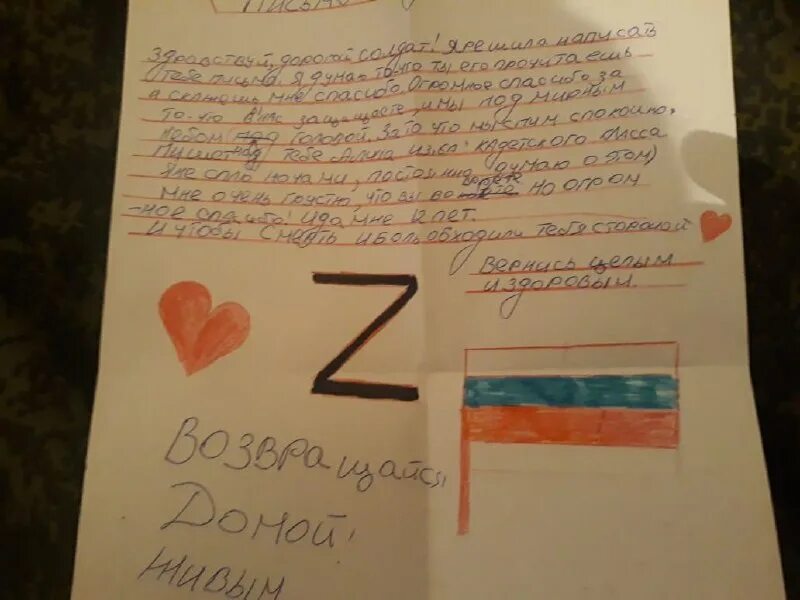 Письмо
Здравствуй, дорогой солдат! Я решила написать
тебе письмо. Я думаю то-что ты его прочита ешь
и скажешь мне спасибо. Огромное спасибо за
то-что Вы нас защищаете и мы под мирным
небом над головой. За то что мы спим спокойно.
Пишет тебе Алина из ка кадетского класса
Я не сплю ночами, постоянно думаю о этом)
Мне очень грустно, что вы воюете Но огром
-ное спасибо! И да, мне 12 лет.
И чтобы Смерть и боль обходили тебя стороной
Вернись целым
и здоровым.
Z
Возвращайся
Домой!
живым